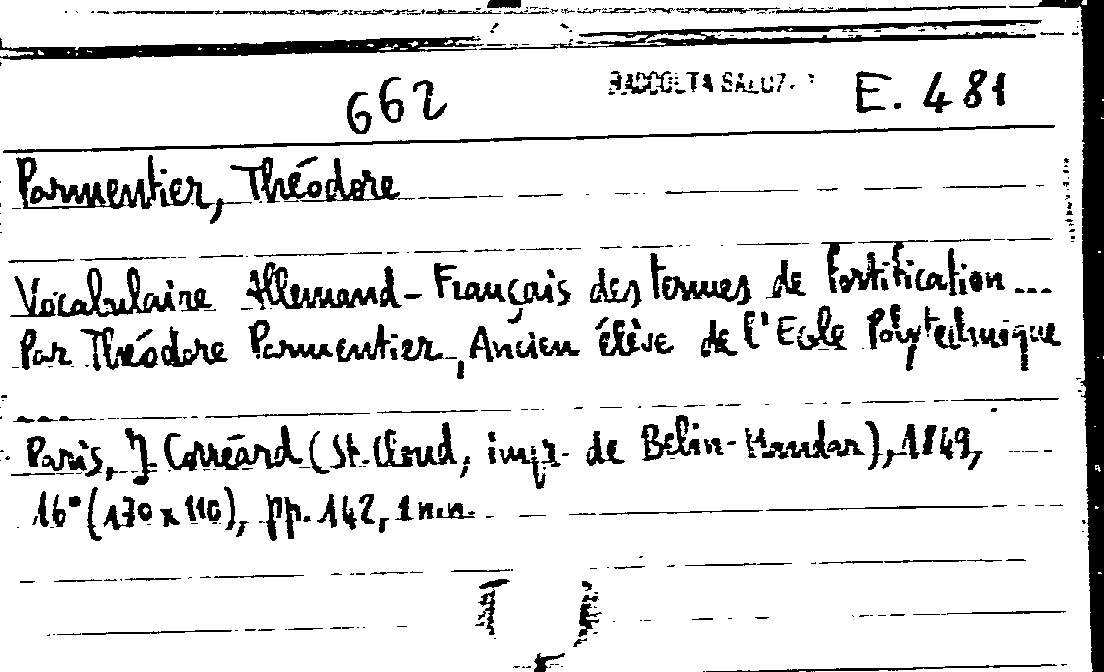 662 RACCOLTA SALUZ. E. 481
Parmentier, Théodore
Vocabulaire Allemand-Français des termes de fortification...
Par Théodore Parmentier, Ancien élève de l'Ecole Polytechnique
....
Paris, J. Corréard (St. Cloud, impr. de Belin-Mandar), 1849,
16° (170 x 110), pp. 142, 1 n.n.